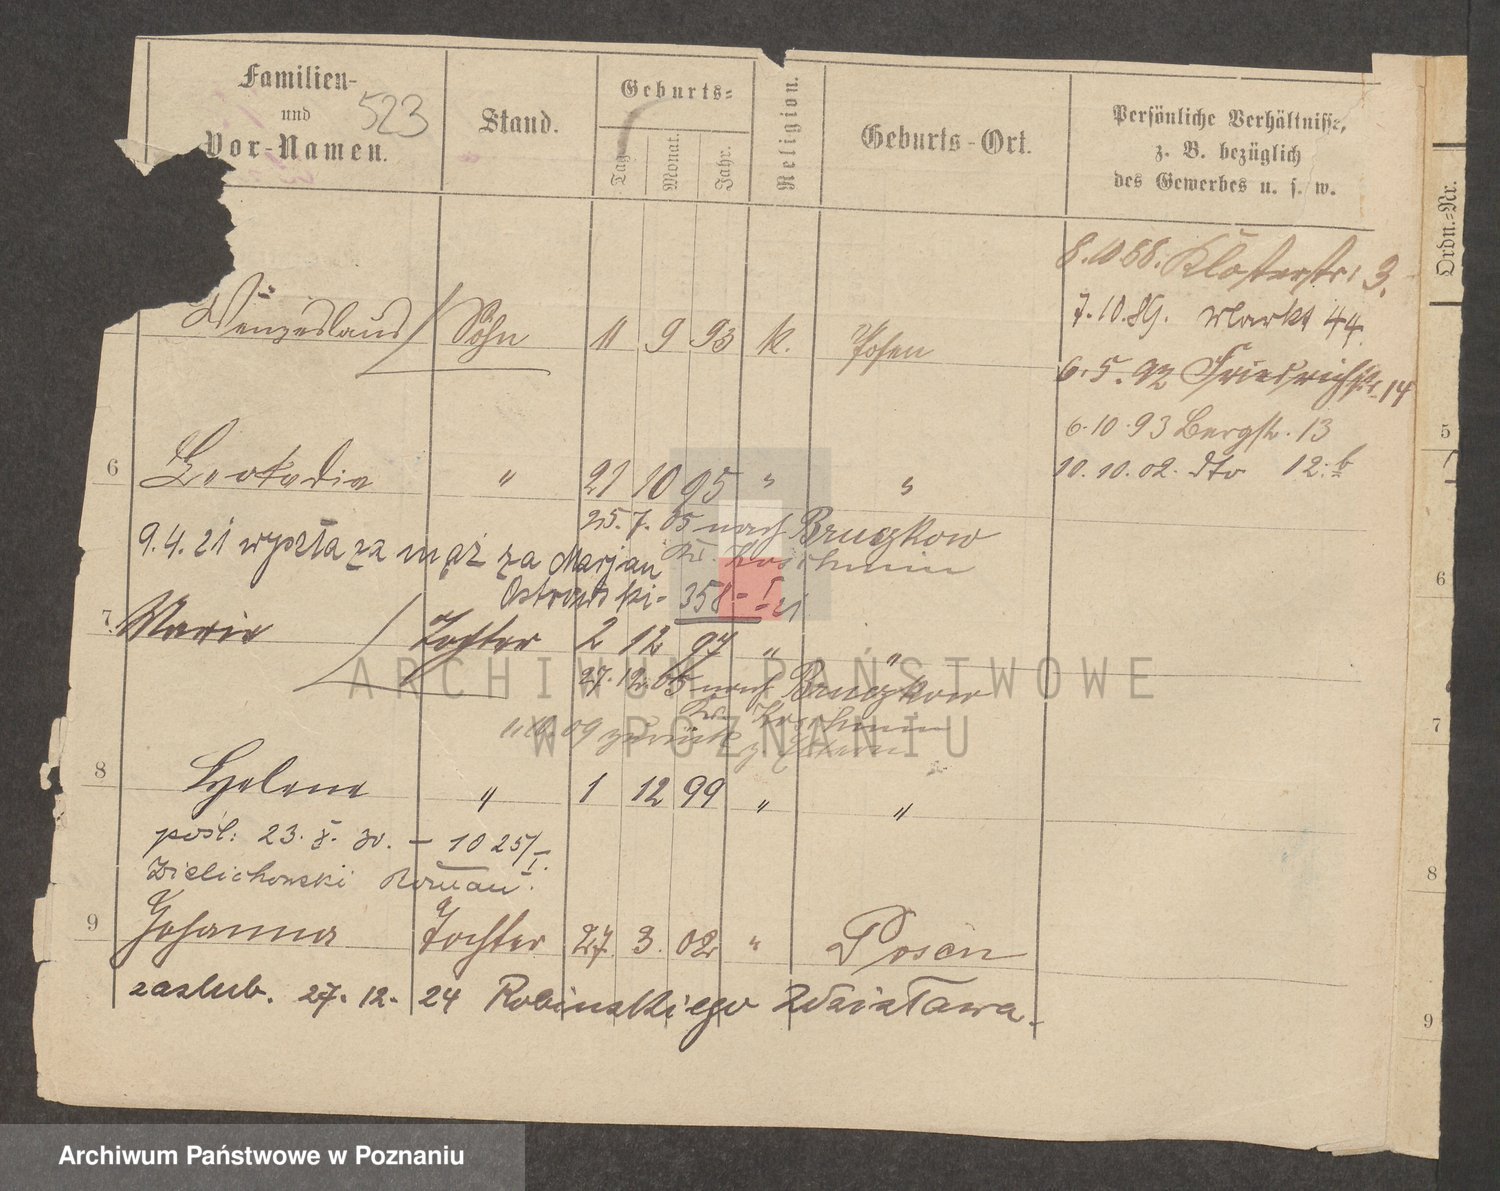 Familien-
und
Vor-Namen.
523
Stand.
Geburts-
Tag
Monat.
Jahr.
Religion.
Geburts-Ort.
Persönliche Verhältnisse,
z. B. bezüglich
des Gewerbes u. s. w.
Ordn.-Nr.
8.10.88. Klosterstr. 3.
7.10.89. Markt 44.
Wenzeslaus Sohn 11 9 93 k. Posen
6.5.92 Friedrichstr. 14
6.10.93 Bergstr. 13
10.10.02. dto 12.b
5
6 Leokadia " 21 10 95 " "
25.7.05 nach Bruczkow
Kr. Koschmin
9.4.21 wyszła za mąż za Marjan
Ostrowski - 358-I-21
6
7. Marie Tochter 2 12 97 " "
27.12.05 nach Bruczkow
Kr. Koschmin
09 zurück
7
8 Helene " 1 12 99 " "
pośl. 23.X.30. - 1025/I.
Zielichowski Roman.
8
9 Johanna Tochter 27. 3. 02 " Posen
zaslub. 27.12.24 Robinskiego Zdzisława.
9
ARCHIWUM PAŃSTWOWE
W POZNANIU
Archiwum Państwowe w Poznaniu